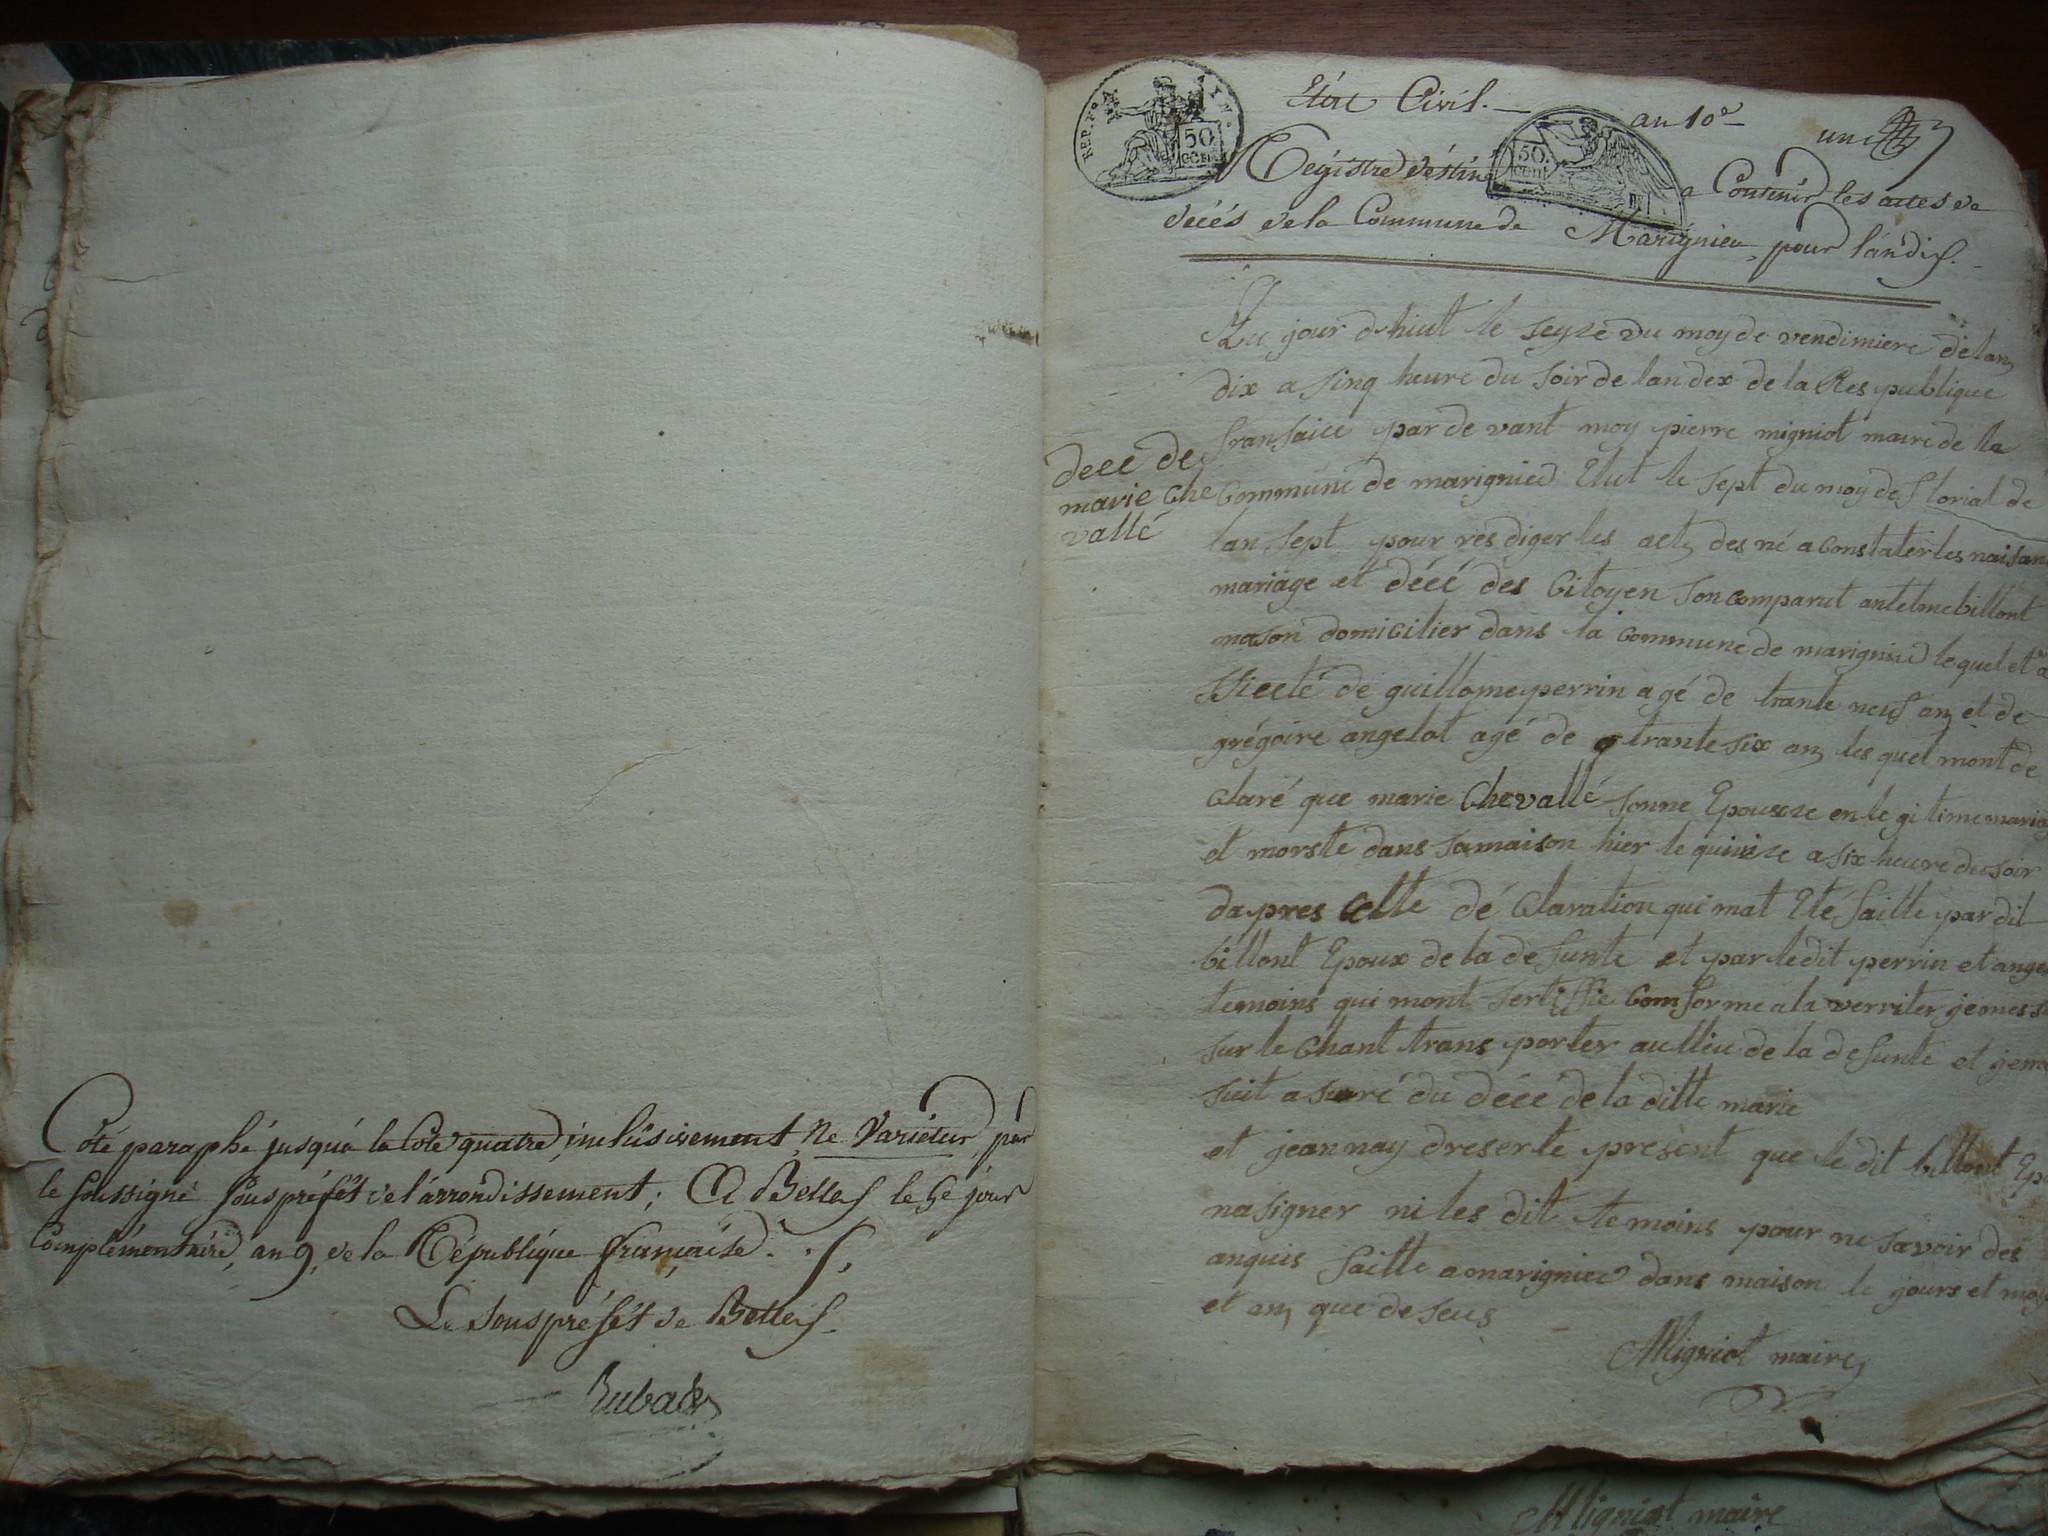 Coté paraphé jusqu'a la Cote quatre, inclusivement, Ne Varietur, par
le soussigné sous préfét de l'arrondissement; A Belley le 5e jour
Complémentaire, an 9, de la République française.
Le sous préfét de Belley
REP. FRA.
50
CEN.
Etat Civil.
50.
CENT.
an 10e
un
Régistre déstiné a Contenir les actes de
décés de la Commune de Marignieu, pour l'an dix.
decé de
marie che
vallé
Au jour dhiut lé seyze du moy de vendimiere de lan
dix a sinq heure du soir de lan dex de la Res publique
fransaice par de vant moy pierre migniot maire de la
Commune de marignieu Elut le sept du moy de florial de
lan sept pour res diger les act des né a Constater les naisan
mariage et décé des Citoyen son comparut antelme billont
mason domicilier dans la Commune de marignieu le quel et a
ssiecté de guillome perrin agé de trante neuf an et de
grégoire angelot agé de trante six an les quel mont de
Claré que marie Chevallé sonne Epousze en le gi time mariag
et morste dans sa maison hier le quinze a six heure du soir
dapres Cette dé Claration qui mat Eté faitte par dit
billont Epoux de la de funte et par ledit perrin et ange
temoins qui mont sertiffie Com for me a la verriter je me s
sur le Chant trans porter au llieu de la de funte et je me
suit a suré du décé de la ditte marie
et jean nay dreser le présent que le dit billont Epo
na signer ni les dit temoins pour ne savoir des
anquis faitte a marignieu dans maison le jours et moy
et an que de seus
Migniot maire
Migniot maire